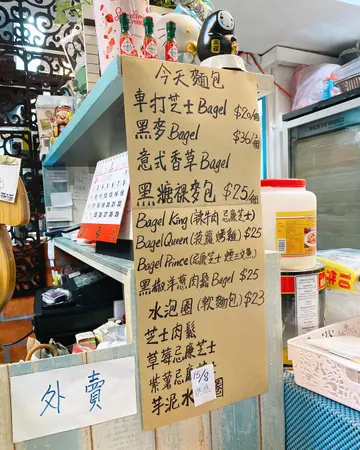 今天麵包
車打芝士Bagel $20/個
黑麥Bagel $36/2個
意式香草Bagel
黑糖裸麥包 $25/個
Bagel King (辣牛肉 忌廉芝士)
Bagel Queen (菠蘿 烤雞) $25
Bagel Prince (忌廉芝士 煙三文魚)
黑椒洋蔥肉鬆Bagel $25
水泡圈 (軟麵包) $23
芝士肉鬆
草莓忌廉芝士
紫薯忌廉芝士
芋泥水圈
15/8
外賣